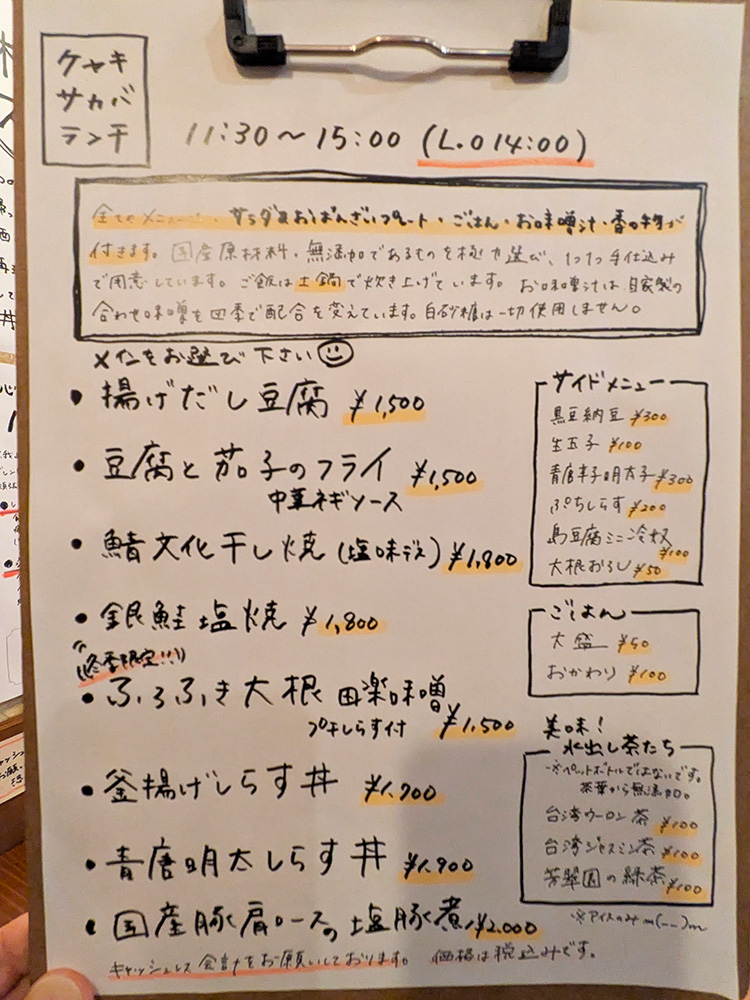 ケヤキ
サカバ
ランチ
11:30～15:00 (L.O 14:00)
全てのメニューに、サラダ&おばんざいプレート・ごはん・お味噌汁・香の物が
付きます。国産原材料・無添加であるものを極力選び、1つ1つ手仕込み
で用意しています。ご飯は土鍋で炊き上げています。お味噌汁は自家製の
合わせ味噌を四季で配合を変えています。白砂糖は一切使用しません。
メインをお選び下さい
• 揚げだし豆腐 ¥1,500
• 豆腐と茄子のフライ ¥1,500
中華ネギソース
• 鯖文化干し焼(塩味デス) ¥1,800
• 銀鮭塩焼 ¥1,800
冬季限定!!
• ふろふき大根 田楽味噌
プチしらす付 ¥1,500
• 釜揚げしらす丼 ¥1,700
• 青唐明太しらす丼 ¥1,900
• 国産豚肩ロースの塩豚煮 ¥2,000
キャッシュレス会計をお願いしております。 価格は税込みです。
サイドメニュー
黒豆納豆 ¥300
生玉子 ¥100
青唐辛子明太子 ¥300
ぷちしらす ¥200
島豆腐ミニ冷奴
¥100
大根おろし ¥50
ごはん
大盛 ¥50
おかわり ¥100
美味!
水出し茶たち
※ペットボトルではないです。
茶葉から無添加。
台湾ウーロン茶 ¥100
台湾ジャスミン茶 ¥100
芳翠園の緑茶 ¥100
※アイスのみ m(_ _)m